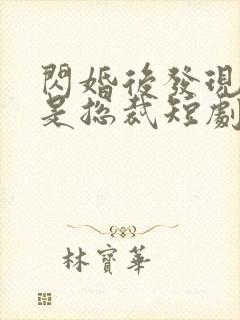 閃婚後發現
是總裁短劇
林寶華